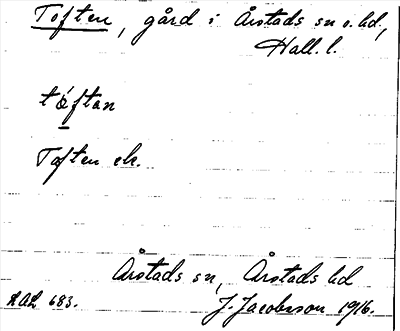 Toften, gård i Årstads sn o. hd,
Hall. l.
tǿftan
Toften ek.
Årstads sn, Årstads hd
AAL 683.
J. Jacobsson 1916.